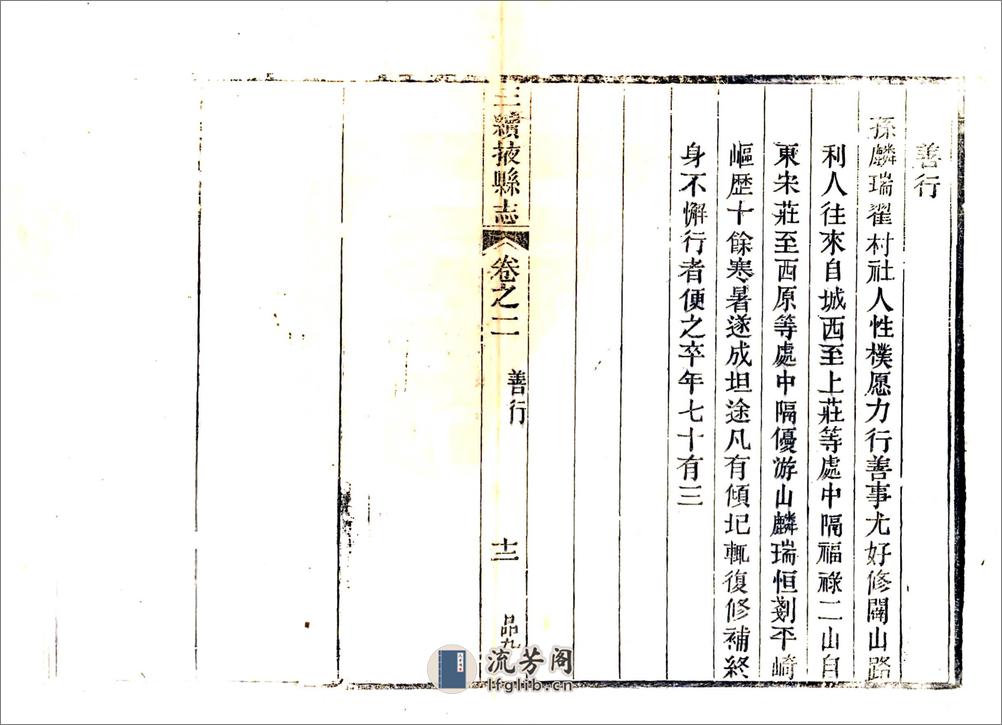 善行
孫麟瑞翟村社人性樸愿力行善事尤好修闢山路
利人往來自城西至上莊等處中隔福祿二山自
東朱莊至西原等處中隔優游山麟瑞恒剗平崎
嶇歷十餘寒暑遂成坦途凡有傾圮輒復修補終
身不懈行者便之卒年七十有三
三續掖縣志
卷之二
善行
十二
品九
流芳阁
lfglib.cn